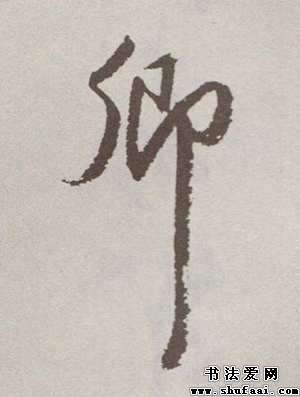 卿
书法爱网
www.shufaai.com